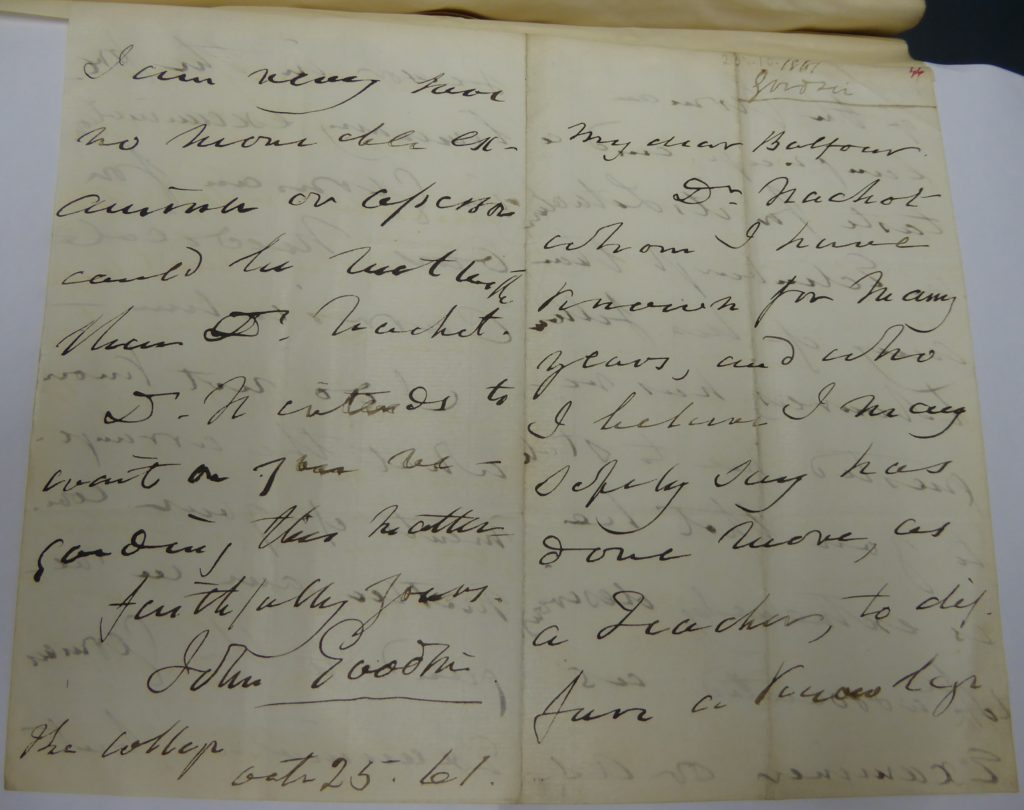 25.10.1861
44
Goodsir
My dear Balfour.
Dr. Nachot
whom I have
known for many
years, and who
I believe I may
safely say has
done more, as
a Teacher, to dif-
fuse a knowledge
I am very sure
no more able ex-
aminer or assessor
could be met with
than Dr. Nachot.
Dr. N intends to
wait on you re
garding this matter
faithfully yours.
John Goodsir
The College
octr 25. 61.